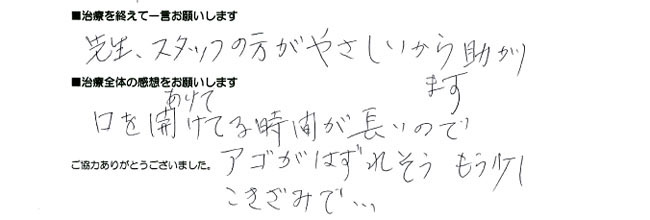 ■治療を終えて一言お願いします
先生、スタッフの方がやさしいから助かり
ます
■治療全体の感想をお願いします
あけて
口を開けてる時間が長いので
ご協力ありがとうございました。
アゴがはずれそう もう少し
こきざみで…